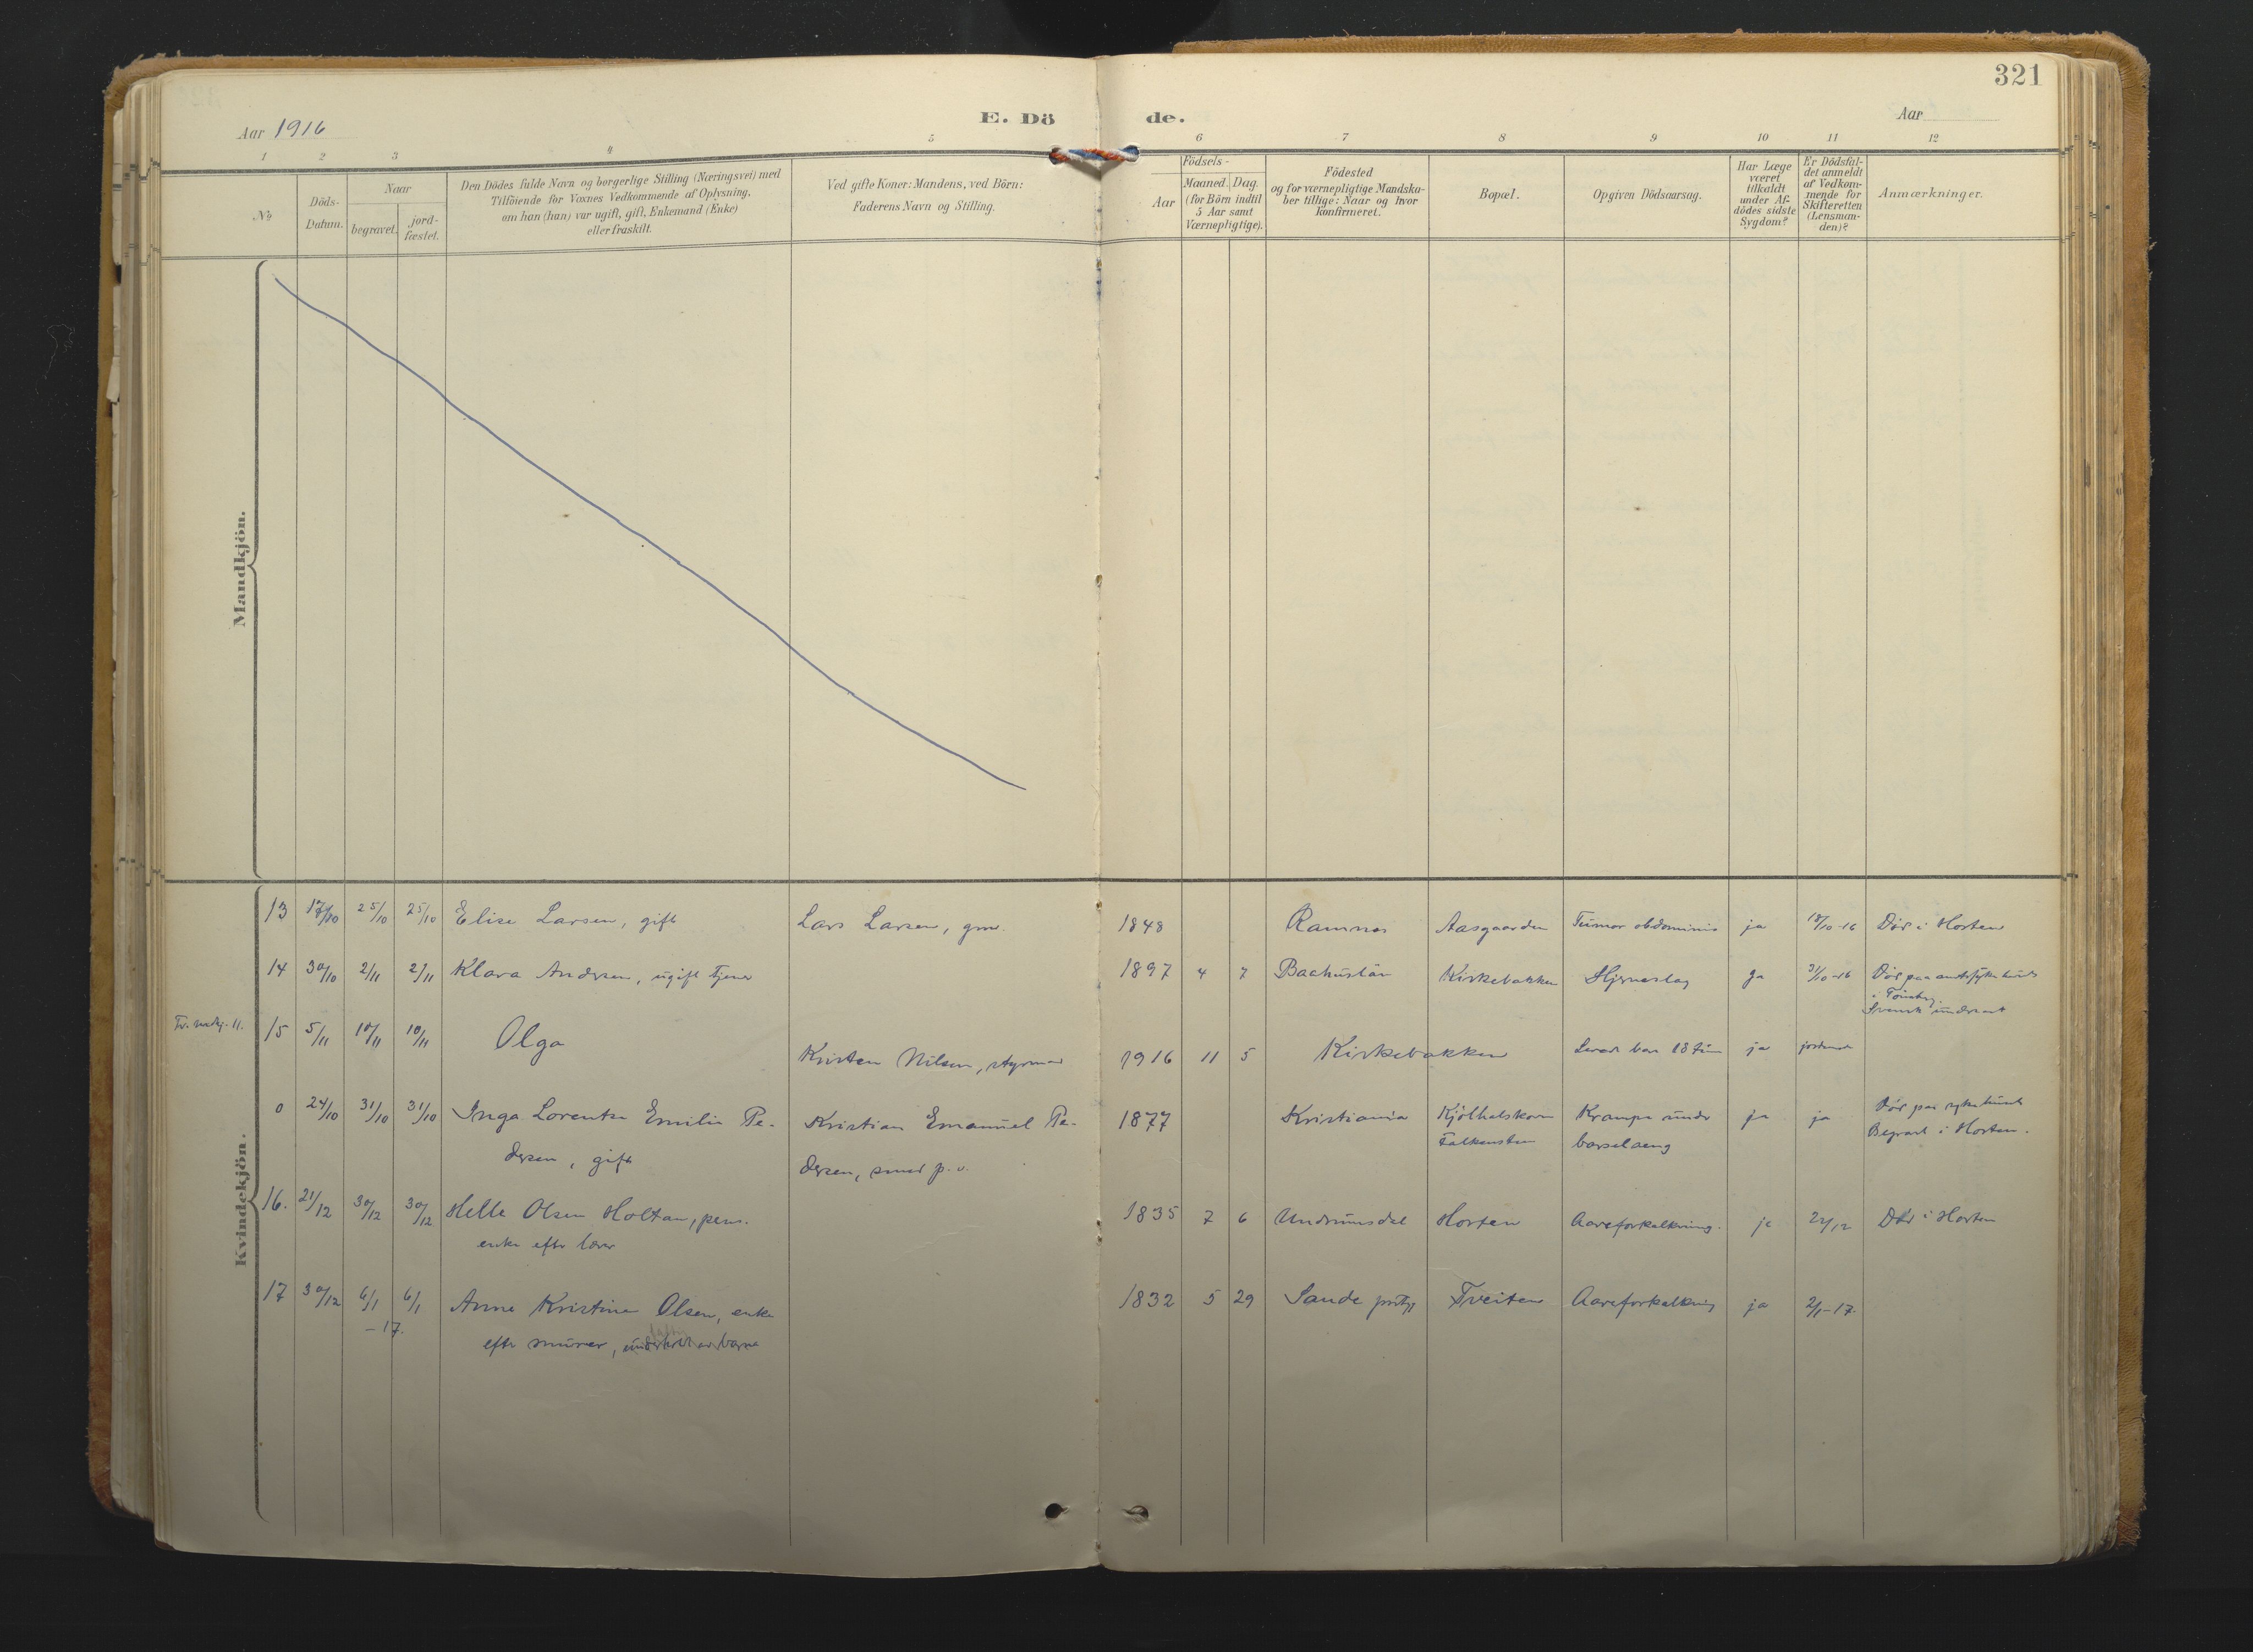 321
E. Dö de.
Aar 1916
Aar
1 2 3 4 5 6 7 8 9 10 11 12
No
Döds-
Datum.
Naar
begravet.
jord-
fæstet.
Den Dödes fulde Navn og borgerlige Stilling (Næringsvei) med
Tilföiende for Voxnes Vedkommende af Oplysning,
om han (hun) var ugift, gift, Enkemand (Enke)
eller fraskilt.
Ved gifte Koner: Mandens, ved Börn:
Faderens Navn og Stilling.
Födsels-
Aar
Maaned. Dag.
(for Börn indtil
5 Aar samt
Værnepligtige).
Födested
og for værnepligtige Mandska-
ber tillige: Naar og hvor
konfirmeret.
Bopæl.
Opgiven Dödsaarsag.
Har Læge
været
tilkaldt
under Af-
dödes sidste
Sygdom?
Er Dödsfal-
det anmeldt
af Vedkom-
mende for
Skifteretten
(Lensman-
den)?
Anmærkninger.
Mandkjön.
Kvindekjön.
13 17/10 25/10 25/10 Elise Larsen, gift Lars Larsen, grm. 1848 Ramnes Aasgaarden Tumor abdominis ja 18/10-16 Död i Horten
14 30/10 2/11 2/11 Klara Andersen, ugift tjener 1897 4 7 Baahuslän Kirkebakken Hjerneslag ja 31/10-16 Död paa amtssykehuset
i Tönsberg.
Svensk undersaat
15 5/11 10/11 10/11 Olga Kristen Nilsen, styrmand 1916 11 5 Kirkebakken Levet bare 18 tim ja
0 24/10 31/10 31/10 Inga Lorentse Emilie Pe- Kristian Emanuel Pe- 1877 Kristiania Kjölhalskoven Krampe under ja ja Död paa sykehuset
dersen, gift dersen, smed p. v. Falkensten barselseng Begravet i Horten.
16. 21/12 30/12 30/12 Helle Olsen Holtan, pens. 1835 7 6 Undrumsdal Horten Aareforkalkning. ja 22/12 Död i Horten
enke efter lærer
17 30/12 6/1 6/1 Anne Kristine Olsen, enke 1832 5 29 Sande prstgj Tveiten Aareforkalkning ja 2/1-17.
-17. efter murer, underholdt av barna